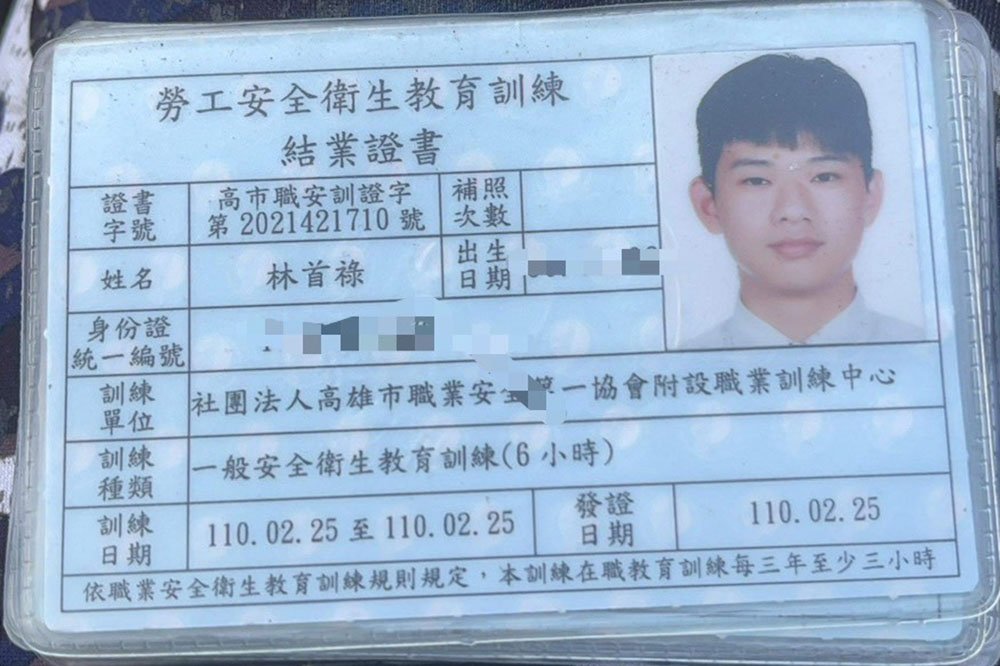 勞工安全衛生教育訓練
結業證書
證書字號
高市職安訓證字
第 2021421710 號
補照次數
姓名
林首祿
出生日期
身份證
統一編號
訓練單位
社團法人高雄市職業安全第一協會附設職業訓練中心
訓練種類
一般安全衛生教育訓練(6小時)
訓練日期
110.02.25 至 110.02.25
發證日期
110.02.25
依職業安全衛生教育訓練規則規定，本訓練在職教育訓練每三年至少三小時